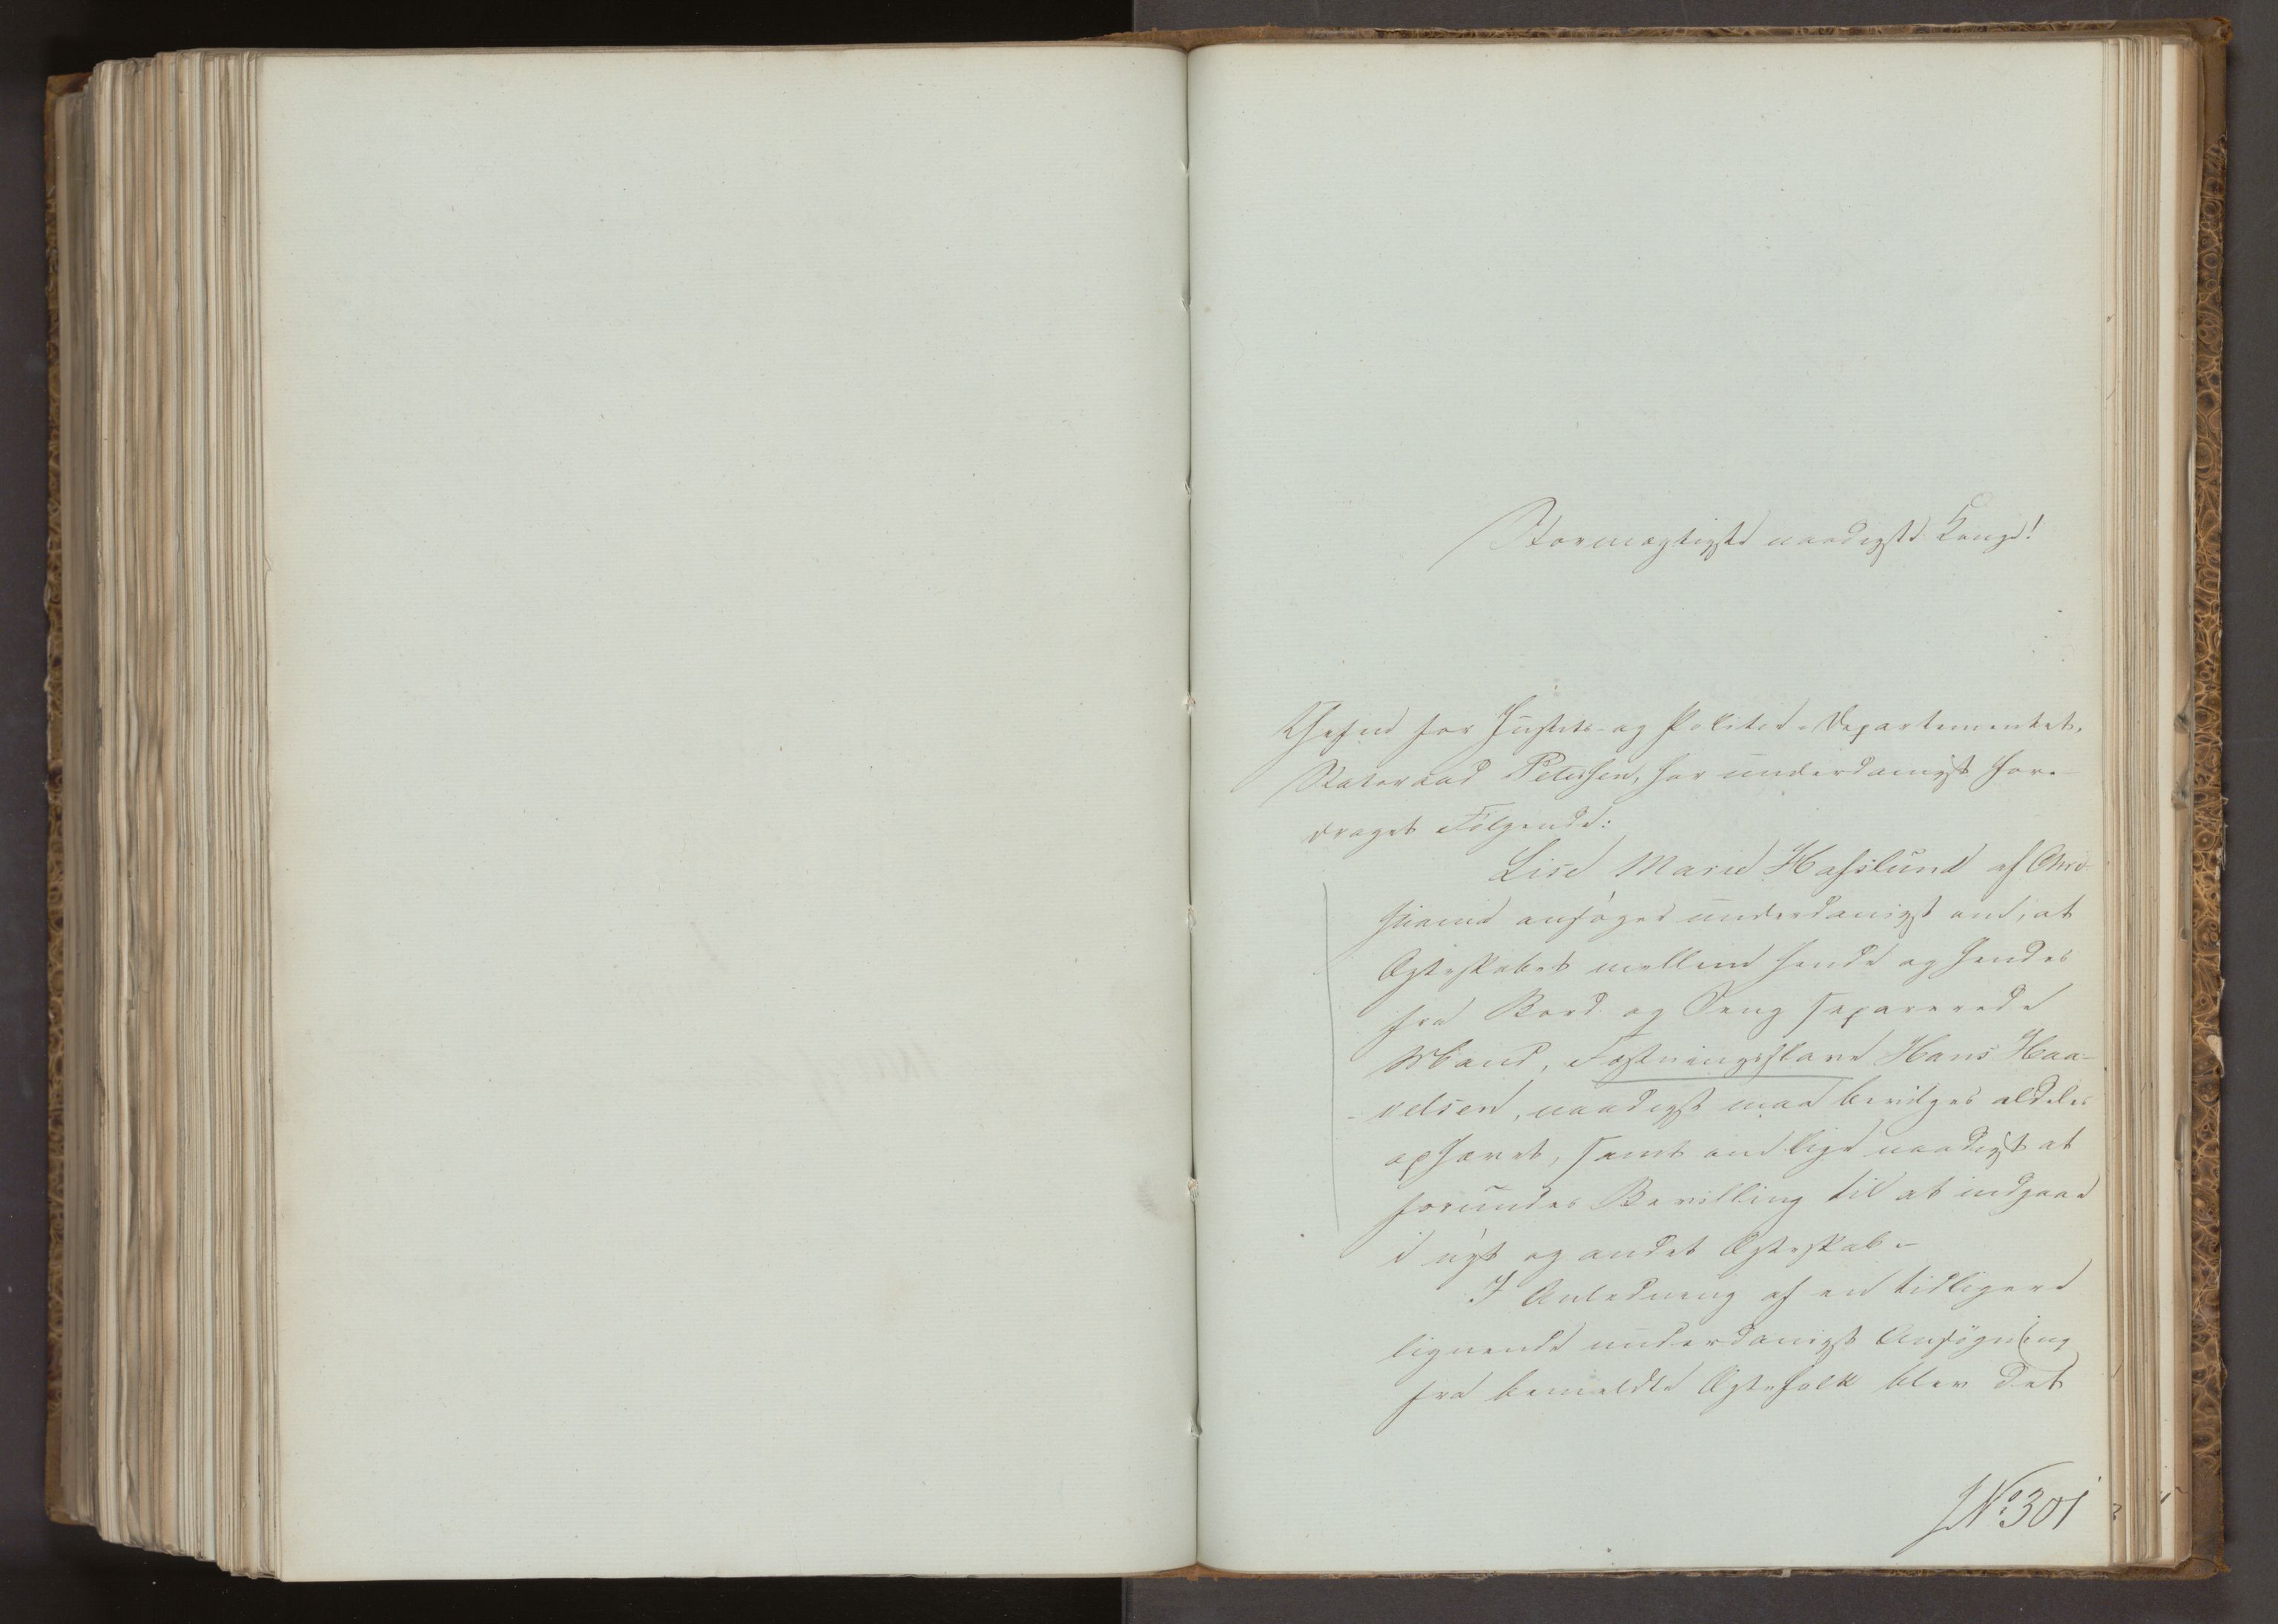 Stormægtigste naadigste Konge!
Chefen for Justits- og Politie-Departementet,
Statsraad Petersen, har underdanigst fore-
draget Følgende:
Lise Marie Hafslund af Chri-
stiania ansøger underdanigst om, at
Ægteskabet mellem hende og hendes
fra Bord og Seng separerede
Mand, Fæstningsslave Hans Haa-
velsen, naadigst maa bevilges aldeles
ophævet, samt om lige naadigst at
forundes Bevilling til at indgaae
i nyt og andet Ægteskab.-
I Anledning af en tidligere
lignende underdanigst Ansøgning
fra bemeldte Ægtefolk blev det
JNo 301